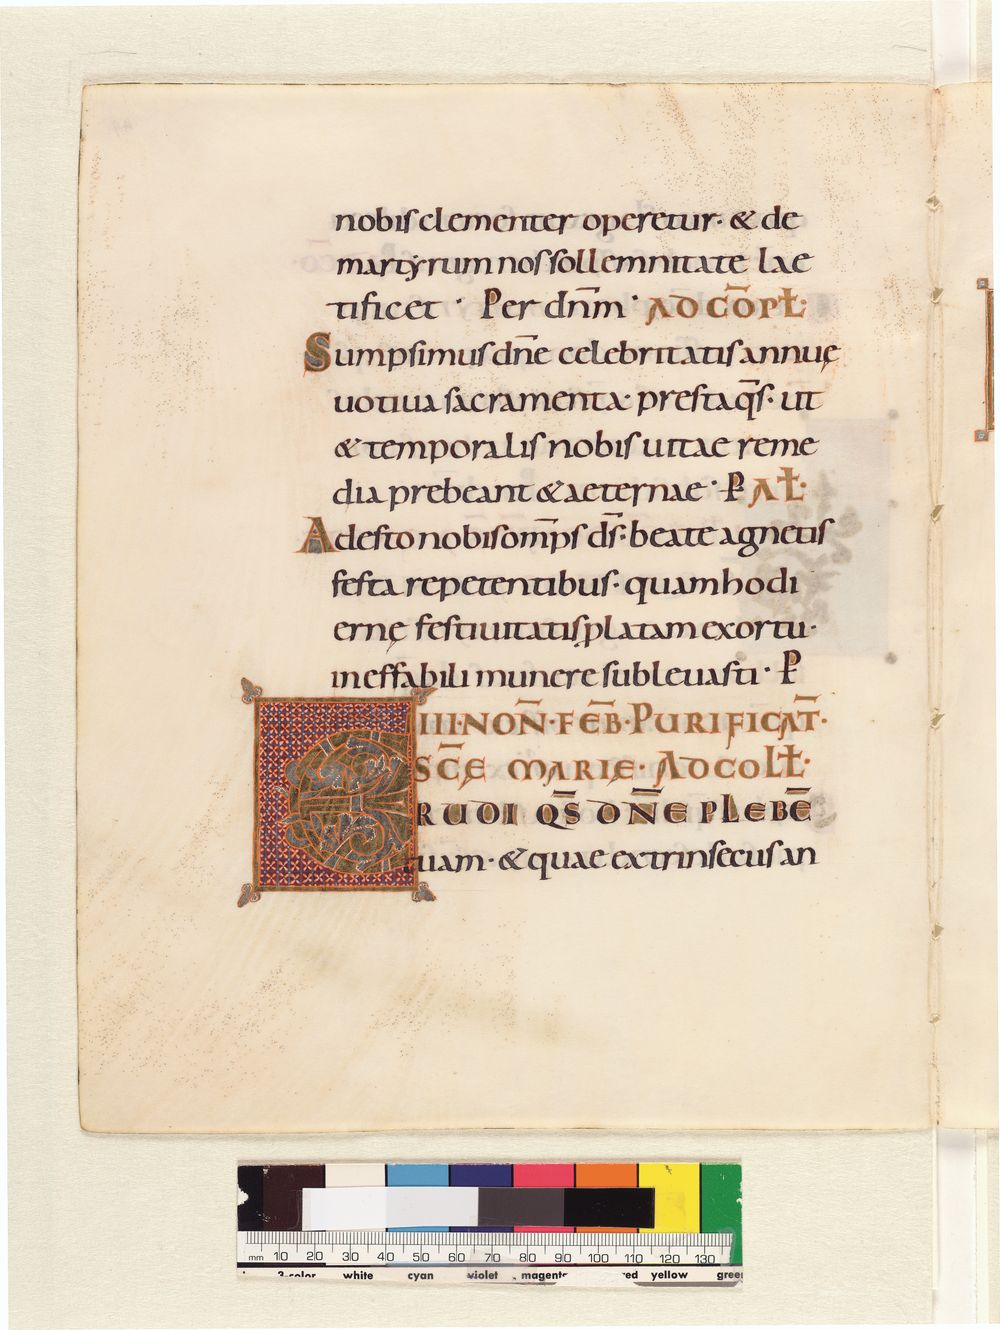 nobis clementer operetur· & de
martyrum nos sollemnitate lae
tificet · Per dn̄m · AD CŌPŁ·
Sumpsimus dn̄e celebritatis annuę
uotiua sacramenta· presta qs̄· ut
& temporalis nobis uitae reme
dia prebeant & aeternae · P AŁ·
Adesto nobis om̄ps ds̄· beate agnetis
festa repetentibus· quam hodi
ernę festiuitatis platam exortu·
ineffabili munere subleuasti · P
IIII·NOÑ·FEB̄·PURIFICAT̄·
SC̄Ę MARIE· AD COLŁ·
ERUDI QS̄ DN̄E PLEBĒ
tuam· & quae extrinsecus an
mm 10 20 30 40 50 60 70 80 90 100 110 120 130
3-color white cyan violet magenta red yellow green